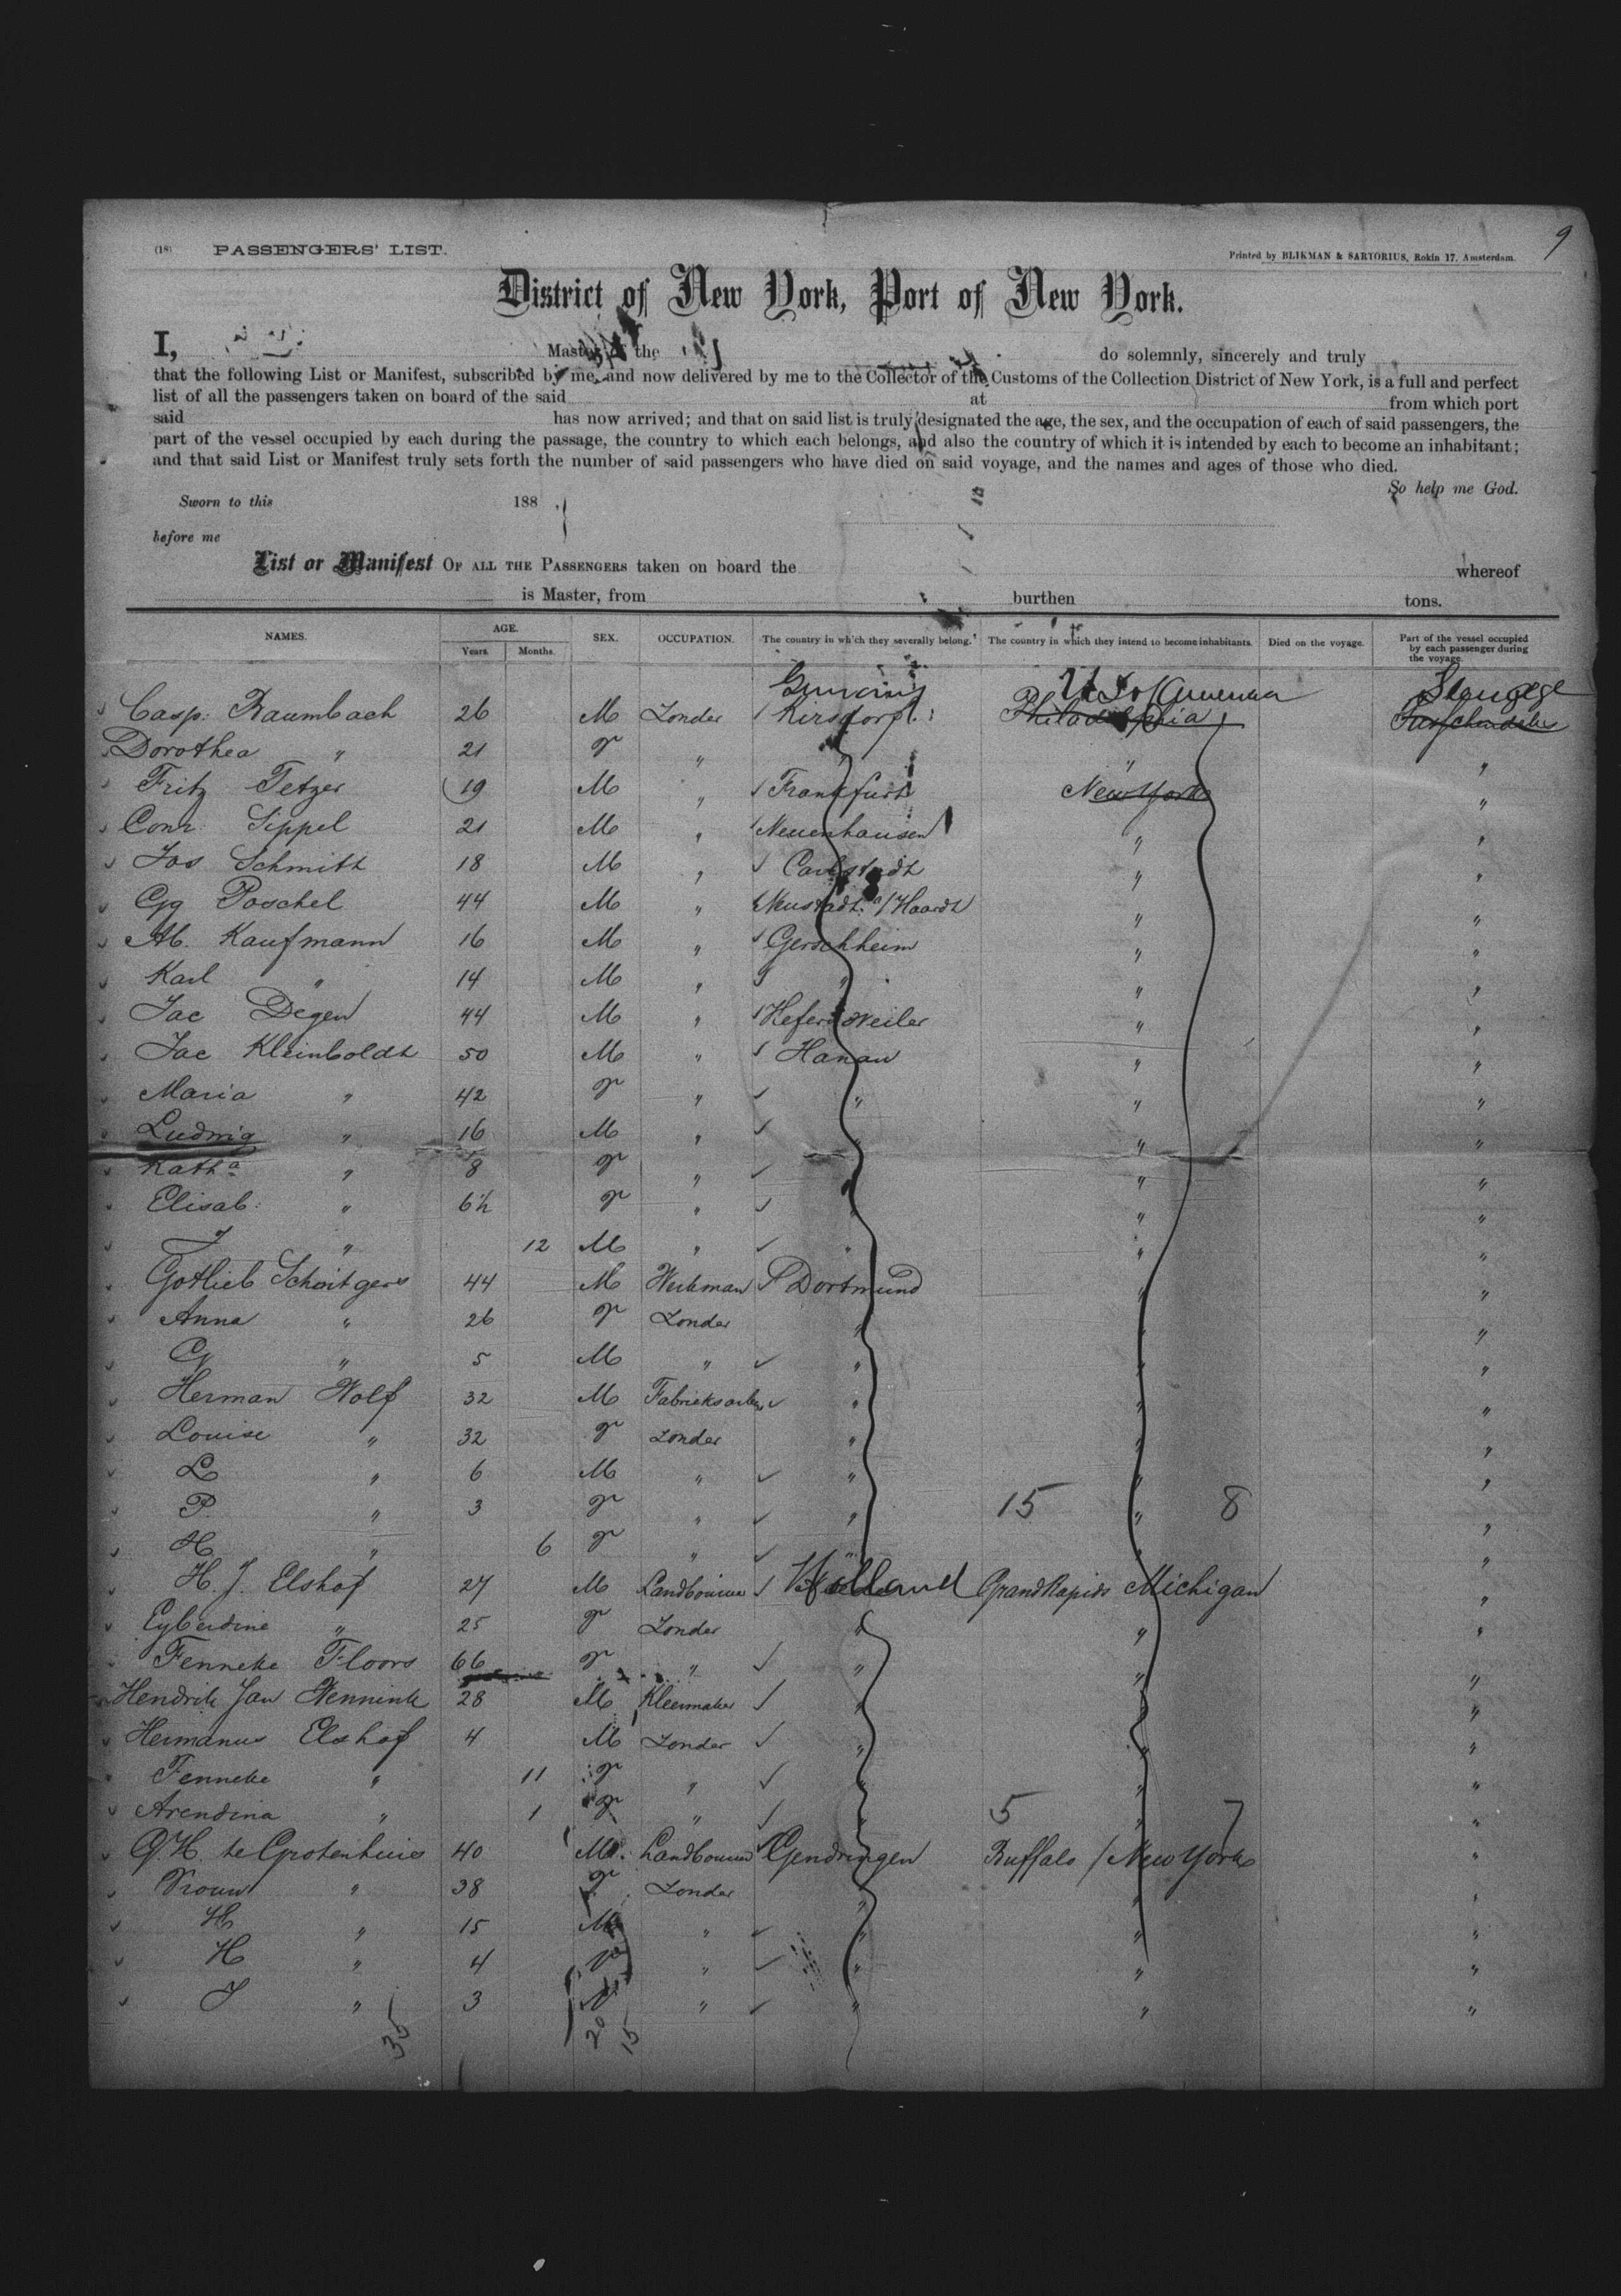 9
(18) PASSENGERS' LIST.
Printed by BLIKMAN & SARTORIUS, Rokin 17, Amsterdam.
District of New York, Port of New York.
I, Master of the do solemnly, sincerely and truly
that the following List or Manifest, subscribed by me, and now delivered by me to the Collector of the Customs of the Collection District of New York, is a full and perfect
list of all the passengers taken on board of the said at from which port
said has now arrived; and that on said list is truly designated the age, the sex, and the occupation of each of said passengers, the
part of the vessel occupied by each during the passage, the country to which each belongs, and also the country of which it is intended by each to become an inhabitant;
and that said List or Manifest truly sets forth the number of said passengers who have died on said voyage, and the names and ages of those who died.
So help me God.
Sworn to this 188
before me
List or Manifest OF ALL THE PASSENGERS taken on board the whereof
is Master, from burthen tons.
NAMES. AGE. Years. Months. SEX. OCCUPATION. The country in which they severally belong. The country in which they intend to become inhabitants. Died on the voyage. Part of the vessel occupied by each passenger during the voyage.
Germany U S of America Steerage
Casp: Baumbach 26 M Zonder Kirsdorf Philadelphia
Dorothea " 21 F " " " "
Fritz Tetzer 19 M " Frankfurt New York "
Conr. Sippel 21 M " Neuenhausen " "
Jos Schmitt 18 M " Carlstadt " "
Gg Poschel 44 M " Neustadt a/Haardt " "
Ab. Kaufmann 16 M " Gerschheim " "
Karl " 14 M " " " "
Jac Degen 44 M " Hefersweiler " "
Jac Kleinboldt 50 M " Hanau " "
Maria " 42 F " " " "
Ludwig " 16 M " " " "
Katha " 8 F " " " "
Elisab: " 6½ F " " " "
J " 12 M " " " "
Gotlieb Schoitgers 44 M Werkman Dortmund " "
Anna " 26 F Zonder " " "
G " 5 M " " " "
Herman Wolf 32 M Fabrieksarb " " "
Louise " 32 F Zonder " " "
L " 6 M " " " "
P. " 3 F " " 15 " 8 "
H " 6 F " " " "
H. J. Elshof 27 M Landbouwer Holland Grand Rapids Michigan "
Egberdine " 25 F Zonder " " "
Fenneke Floors 66 F " " " "
Hendrik Jan Wennink 28 M Kleermaker " " "
Hermanus Elshof 4 M Zonder " " "
Fenneke " 11 F " " " "
Arendina " 1 F " " 5 " 7 "
G. H. te Grotenhuis 40 M Landbouwer Gendringen Buffalo / New York "
Vrouw " 38 F Zonder " " "
H " 15 M " " " "
H " 4 " " " "
J " 3 " " " "
35 20 15